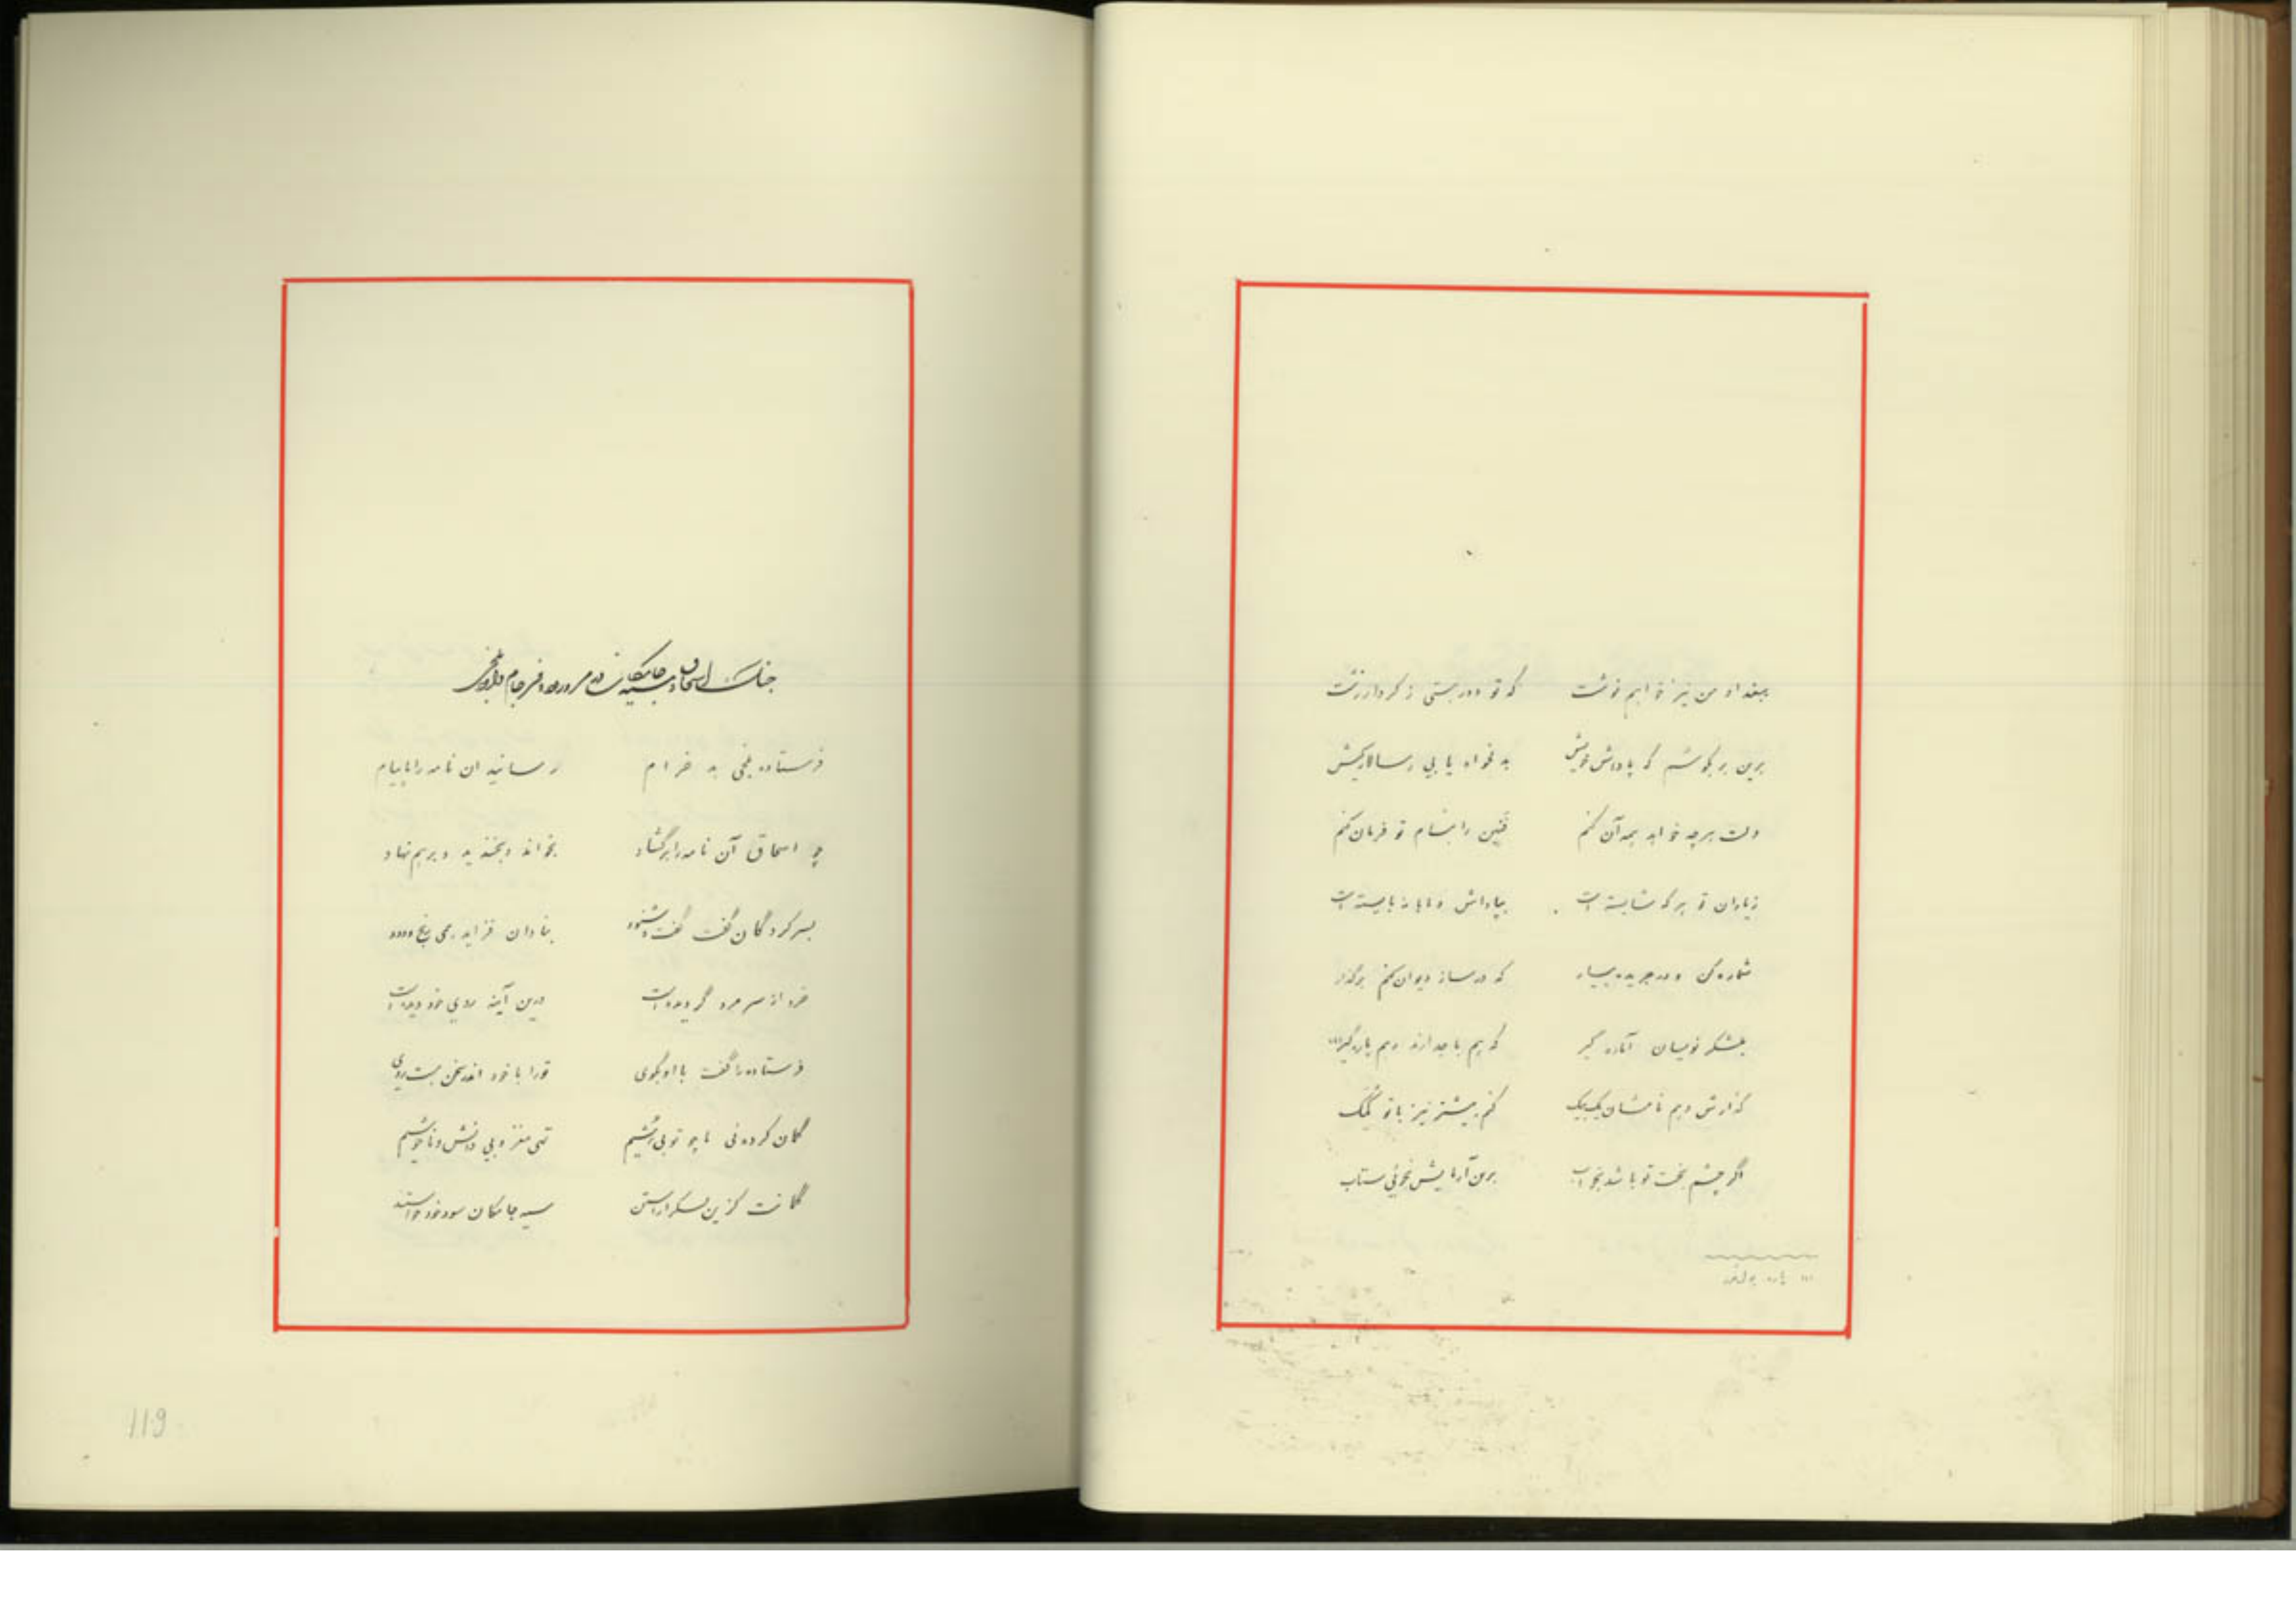 ببغداد من نیز خواهم نوشت    که تو دور بستی ز کردار زشت
برین بر بکوشم که پاداش خویش    به فواه یابی ز سالار کیش
دلت هرچه خواهد همه آن کنم    چنین رابنام تو فرمان کنم
زیاران تو هر که شایسته است    بپاداش و بایسته است
شماره کن و در جریده بیار    که در ساز دیوان کنم برگذار
بلشکر نویسان آماده گیر    که هم باجدارند و هم باره گیر
گزارش دهم نامشان یک بیک    کنم بیشتر نیز با تو کمک
اگر چشم بخت تو باشد بخواب    برین آزمایش نجوئی ستاب
(۱) باره
جنگ اسحاق و سیه جامگان در مرورود و فرجام
فرستاده بلخی به خرام    رسانید آن نامه را با پیام
چو اسحاق آن نامه را برگشاد    بخواند و بخندید و برهم نهاد
بسرکردگان گفت گفت و شنود    بنادان فزاید همی رنج و دود
خرد از سر مرد گردیده است    درین آینه روی خود دیده است
فرستاده را گفت با او بگوی    تورا با خود اندر سخن نیست روی
گمان کرده ئی ما چو تو بی هشیم    تهی مغز و بی دانش و ناخوشیم
گمانت کزین لشکر آراستن    سیه جامگان سود خود خواستند
119